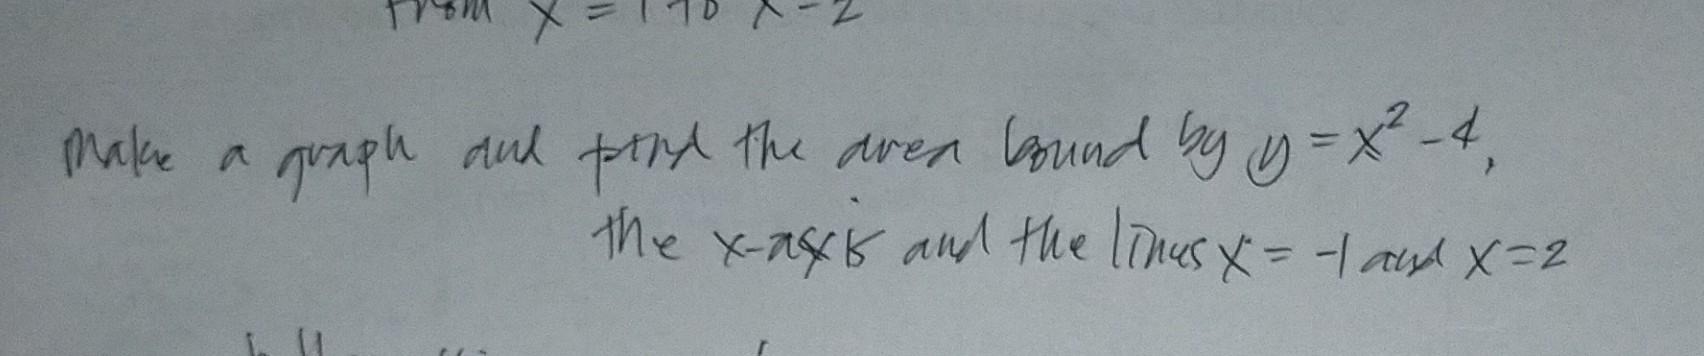 from x = 1 to x - 2
Make a graph and find the area bound by y = x² - 4,
the x-axis and the lines x = -1 and x = 2